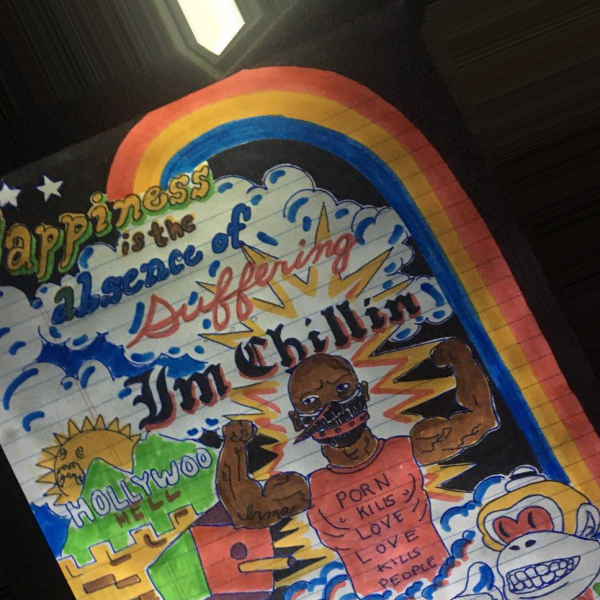 Happiness
is the
absence of
Suffering
Im Chillin
HOLLYWOO
HELL
PORN
KILLS
LOVE
LOVE
KILLS
PEOPLE